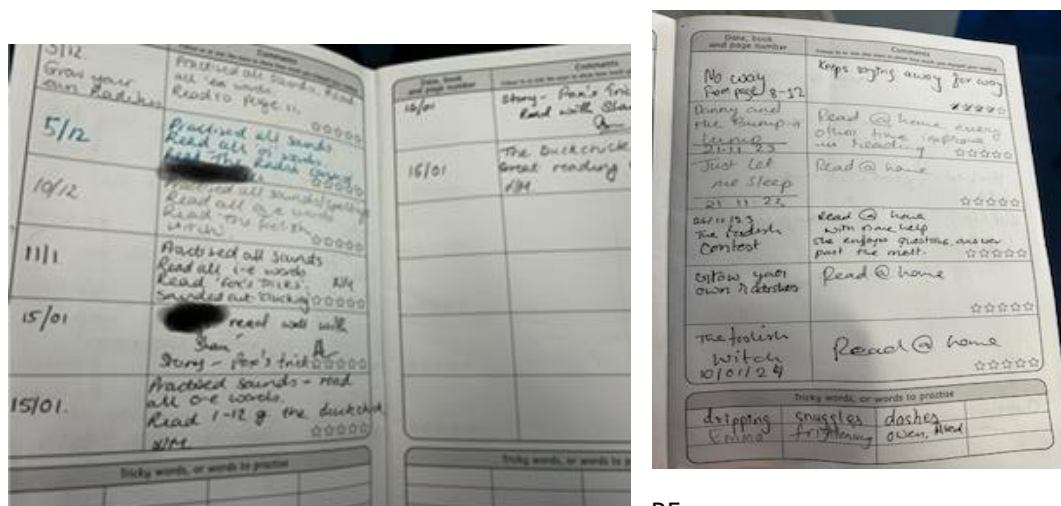 5/12.
Grow your
own Radishes
Comments
Practised all sounds. Read
all 'en words.
Read to page 11
5/12
Practised all sounds
Read all words.
Read The Radish Contest
10/12
Practised all sounds/spellings
Read all o-e words
Read 'The Foolish
Witch'.
11/1
Practised all sounds
Read all i-e words
Read 'Fox's Tricks'. N/M
Sounded out 'Sticking
15/01
read well with
Shan
Story - Fox's trick
15/01.
Practised sounds - read
all o-e words.
Read 1-12 of the duckchick
N/M
Tricky words, or words to practise
Date, book
and page number
Comments
16/01
Story - Fox's Tric
Read with Shan
16/01
The Duckchick
Great reading
N/M
Tricky words, or words to p
Date, book
and page number
Comments
No way
from page 8-12
Keeps saying away for way
Danny and
the Bump-a
Lump
21.11.23
Read @ home every
other time improve
in reading
Just let
me sleep
21.11.23
Read @ home
26/11/23
The Radish
Contest
Read @ home
with some help
she enjoys questions, answer
part the most.
Grow your
own Radishes
Read @ home
The foolish
witch
10/01/24
Read @ home
Tricky words, or words to practise
dripping snuggles dashes
Emma frightening owen,